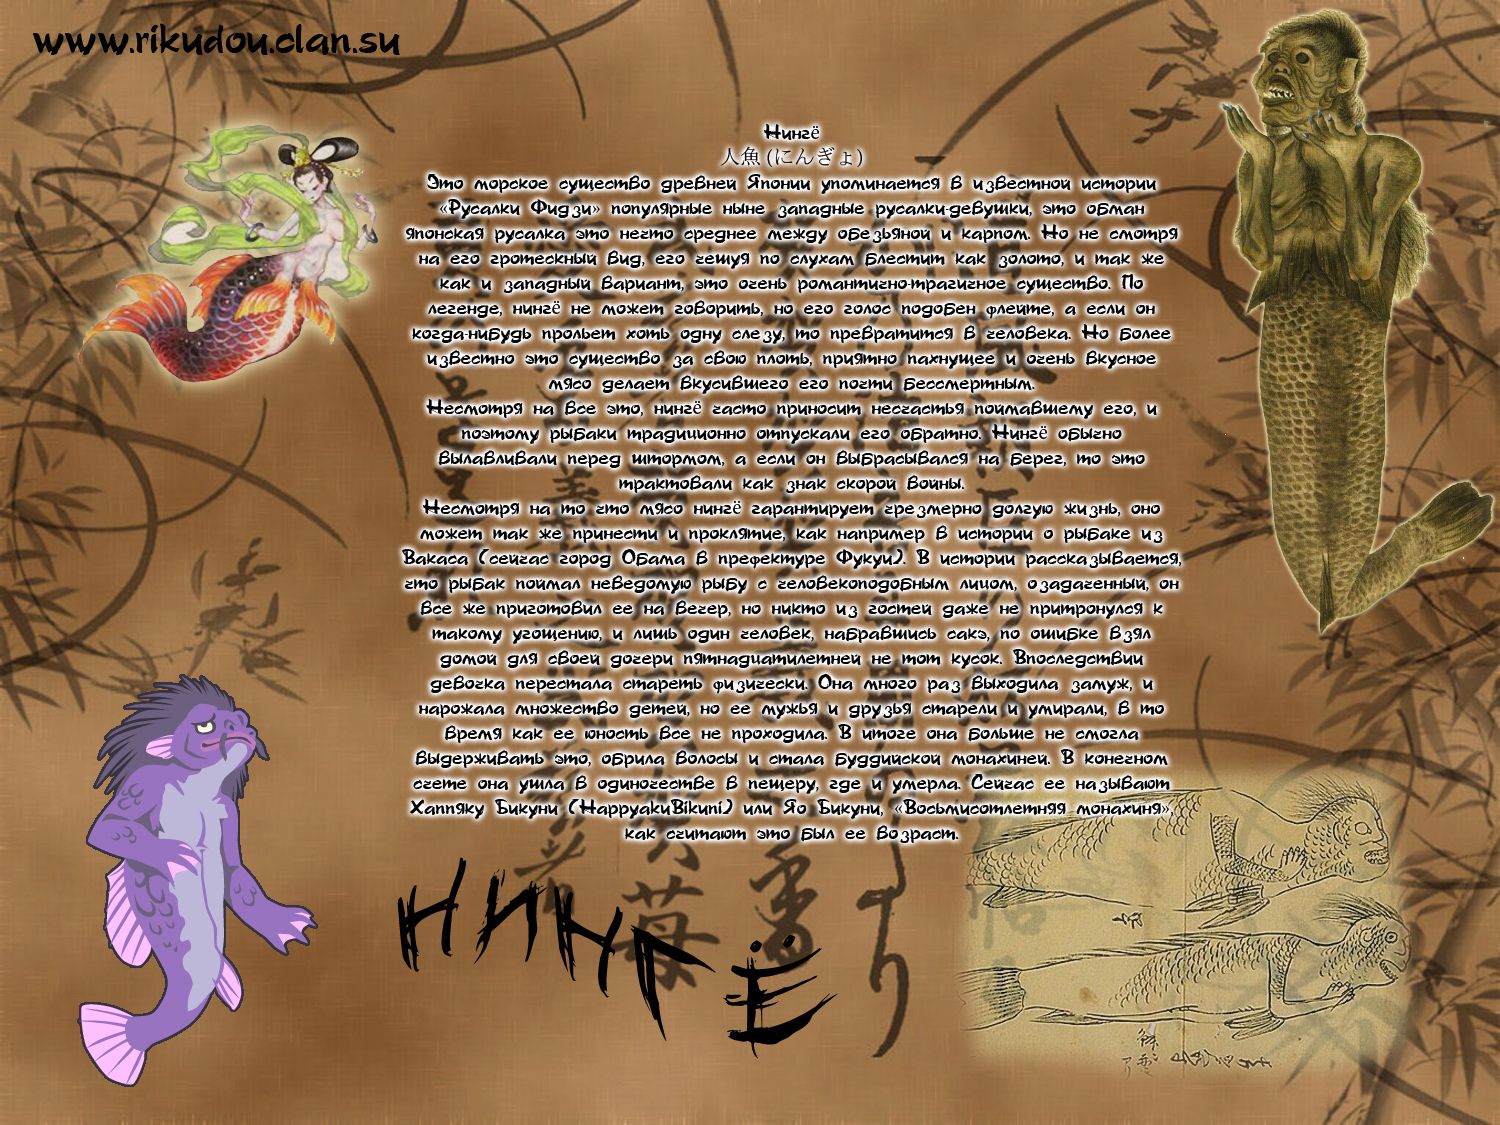 www.rikudou.clan.su
Нингё
人魚 (にんぎょ)
Это морское существо древней Японии упоминается в известной истории
«Русалки Фидзи» популярные ныне западные русалки-девушки, это обман
японская русалка это нечто среднее между обезьяной и карпом. Но не смотря
на его гротескный вид, его чешуя по слухам блестит как золото, и так же
как и западный вариант, это очень романтично-трагичное существо. По
легенде, нингё не может говорить, но его голос подобен флейте, а если он
когда-нибудь прольет хоть одну слезу, то превратится в человека. Но более
известно это существо за свою плоть, приятно пахнущее и очень вкусное
мясо делает вкусившего его почти бессмертным.
Несмотря на все это, нингё часто приносит несчастья поймавшему его, и
поэтому рыбаки традиционно отпускали его обратно. Нингё обычно
вылавливали перед штормом, а если он выбрасывался на берег, то это
трактовали как знак скорой войны.
Несмотря на то что мясо нингё гарантирует чрезмерно долгую жизнь, оно
может так же принести и проклятие, как например в истории о рыбаке из
Вакаса (сейчас город Обама в префектуре Фукуи). В истории рассказывается,
что рыбак поймал неведомую рыбу с человекоподобным лицом, озадаченный, он
все же приготовил ее на вечер, но никто из гостей даже не притронулся к
такому угощению, и лишь один человек, набравшись сакэ, по ошибке взял
домой для своей дочери пятнадцатилетней не тот кусок. Впоследствии
девочка перестала стареть физически. Она много раз выходила замуж, и
нарожала множество детей, но ее мужья и друзья старели и умирали, в то
время как ее юность все не проходила. В итоге она больше не смогла
выдерживать это, обрила волосы и стала буддийской монахиней. В конечном
счете она ушла в одиночестве в пещеру, где и умерла. Сейчас ее называют
Хаппяку Бикуни (HappyakuBikuni) или Яо Бикуни, «Восьмисотлетняя монахиня»,
как считают это был ее возраст.
НИНГЁ